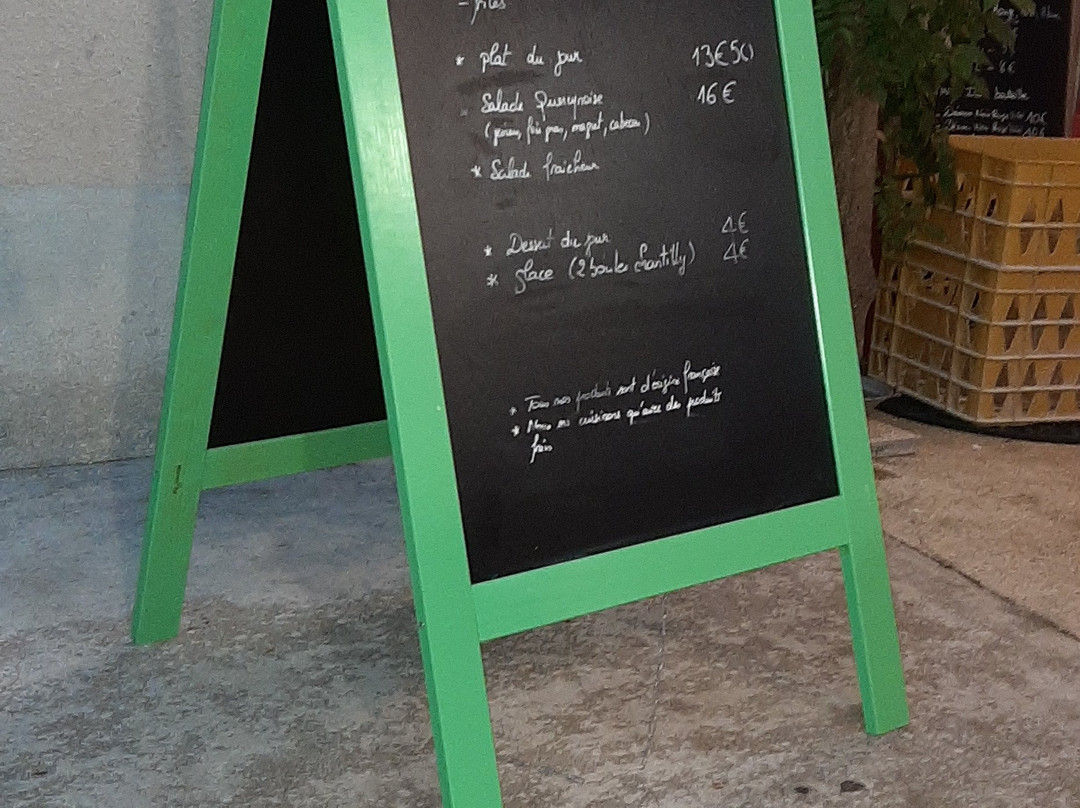 - frites
* plat du jour 13€50
Salade Quercynoise 16€
(gésiers, foie gras, magret, cabecou)
* Salade fraicheur
* Dessert du jour 4€
* glace (2 boules chantilly) 4€
* Tous nos produits sont d'origine française
* Nous ne cuisinons qu'avec des produits
frais
6€
10€
10€